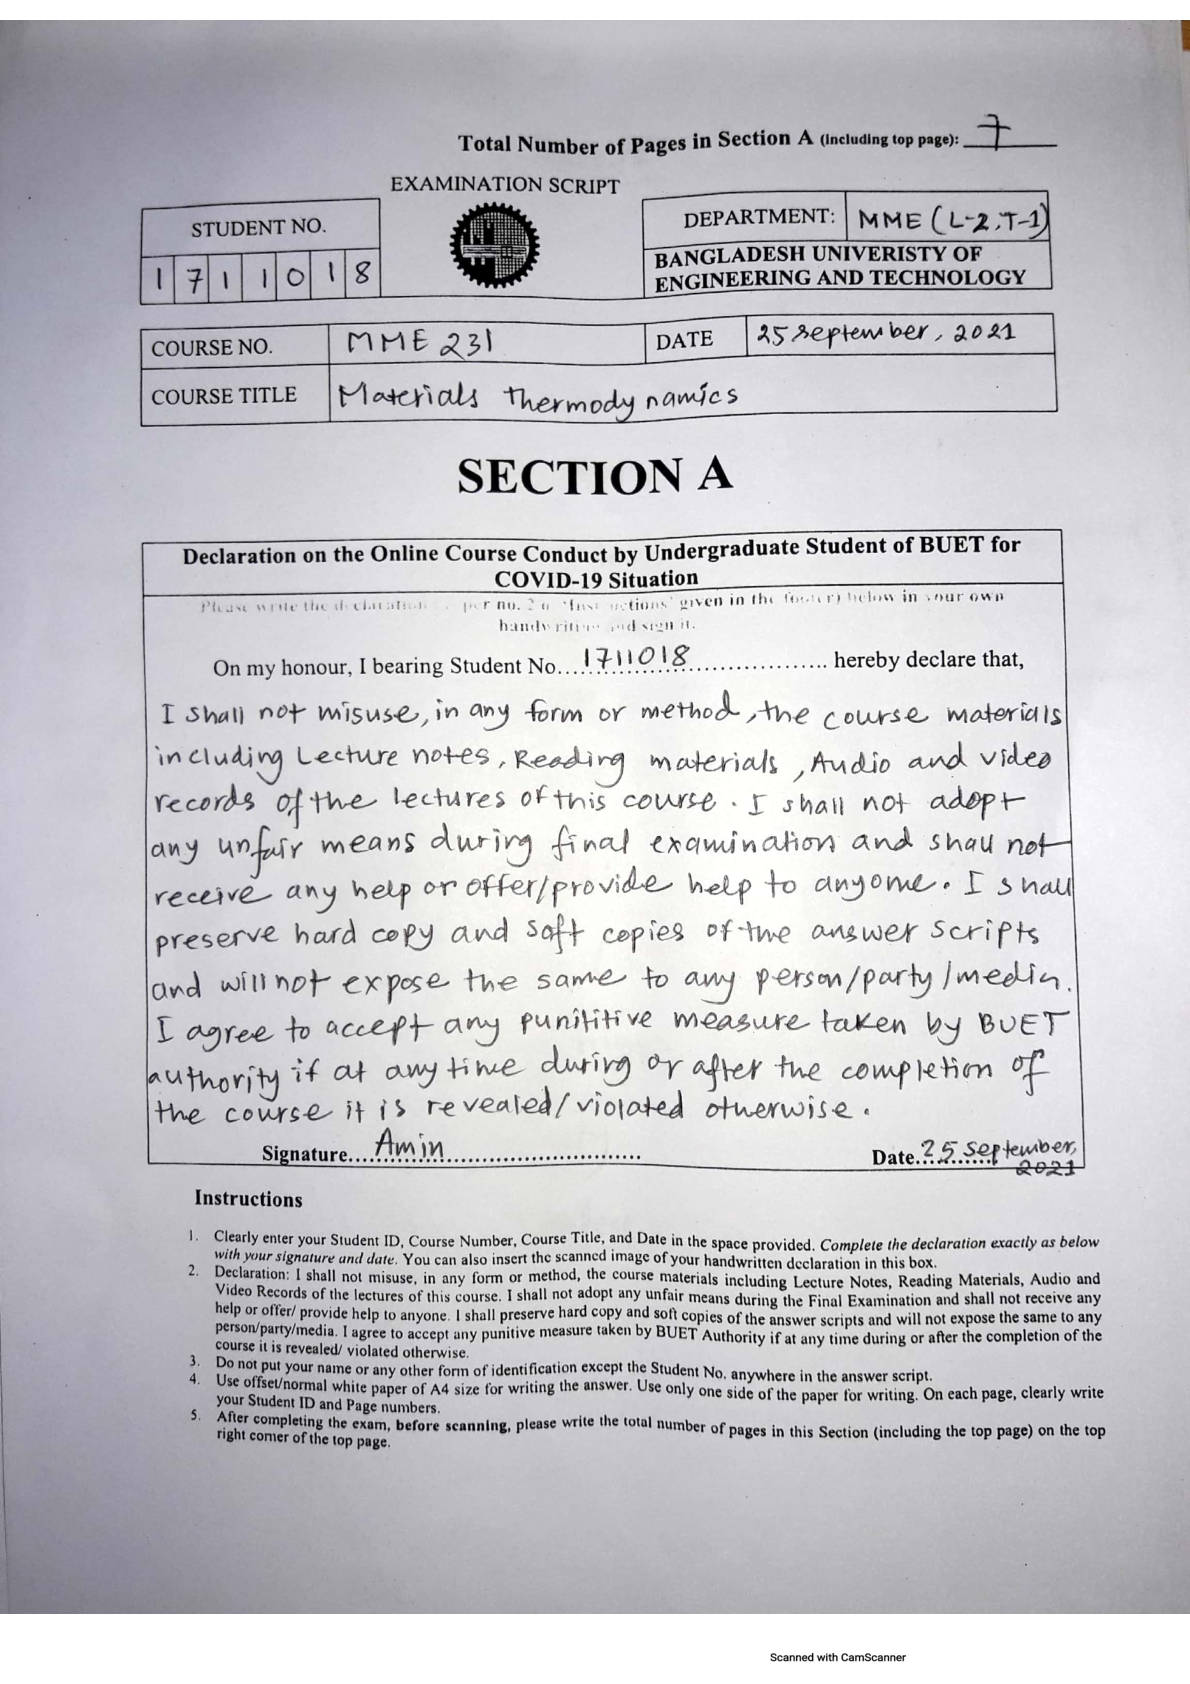 Total Number of Pages in Section A (including top page): 7
EXAMINATION SCRIPT
STUDENT NO.
1711018
DEPARTMENT: MME (L-2,T-1)
BANGLADESH UNIVERISTY OF
ENGINEERING AND TECHNOLOGY
COURSE NO. MME 231 DATE 25 September, 2021
COURSE TITLE Materials Thermodynamics
SECTION A
Declaration on the Online Course Conduct by Undergraduate Student of BUET for
COVID-19 Situation
Please write the declaration per no. 2 given in the footer) below in your own
handwriting and sign it.
On my honour, I bearing Student No....1711018........................ hereby declare that,
I shall not misuse, in any form or method, the course materials
including Lecture notes, Reading materials, Audio and video
records of the lectures of this course. I shall not adopt
any unfair means during final examination and shall not
receive any help or offer/provide help to anyone. I shall
preserve hard copy and soft copies of the answer scripts
and will not expose the same to any person/party/media.
I agree to accept any punititive measure taken by BUET
authority if at any time during or after the completion of
the course it is revealed/violated otherwise.
Signature....Amin.............................. Date.25 September,
2021
Instructions
1. Clearly enter your Student ID, Course Number, Course Title, and Date in the space provided. Complete the declaration exactly as below
with your signature and date. You can also insert the scanned image of your handwritten declaration in this box.
2. Declaration: I shall not misuse, in any form or method, the course materials including Lecture Notes, Reading Materials, Audio and
Video Records of the lectures of this course. I shall not adopt any unfair means during the Final Examination and shall not receive any
help or offer/ provide help to anyone. I shall preserve hard copy and soft copies of the answer scripts and will not expose the same to any
person/party/media. I agree to accept any punitive measure taken by BUET Authority if at any time during or after the completion of the
course it is revealed/ violated otherwise.
3. Do not put your name or any other form of identification except the Student No. anywhere in the answer script.
4. Use offset/normal white paper of A4 size for writing the answer. Use only one side of the paper for writing. On each page, clearly write
your Student ID and Page numbers.
5. After completing the exam, before scanning, please write the total number of pages in this Section (including the top page) on the top
right corner of the top page.
Scanned with CamScanner